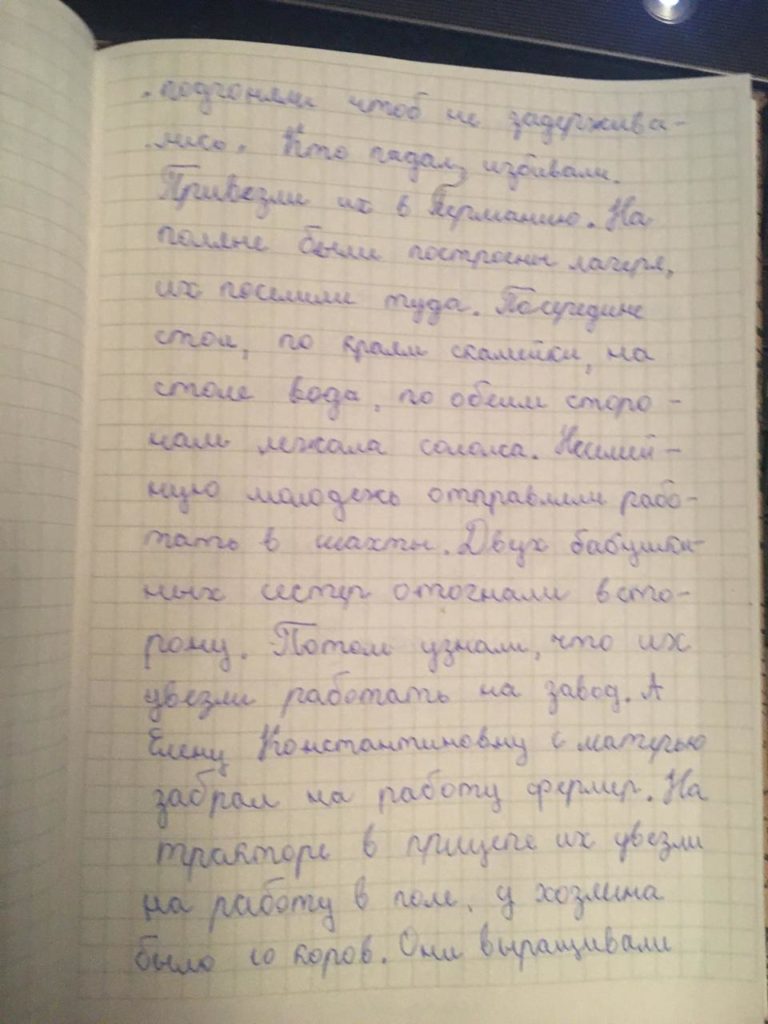 подгоняли чтоб не задержива-
лись. Кто падал, избивали.
Привезли их в Германию. На
поляне были построены лагеря,
их поселили туда. Посередине
стол, по краям скамейки, на
столе вода, по обеим сторо-
нам лежала солома. Несемей-
ную молодежь отправляли рабо-
тать в шахты. Двух бабушки-
ных сестер отогнали в сто-
рону. Потом узнали, что их
увезли работать на завод. А
Елену Константиновну с матерью
забрал на работу фермер. На
тракторе в прицепе их увезли
на работу в поле, у хозяина
было 10 коров. Они выращивали